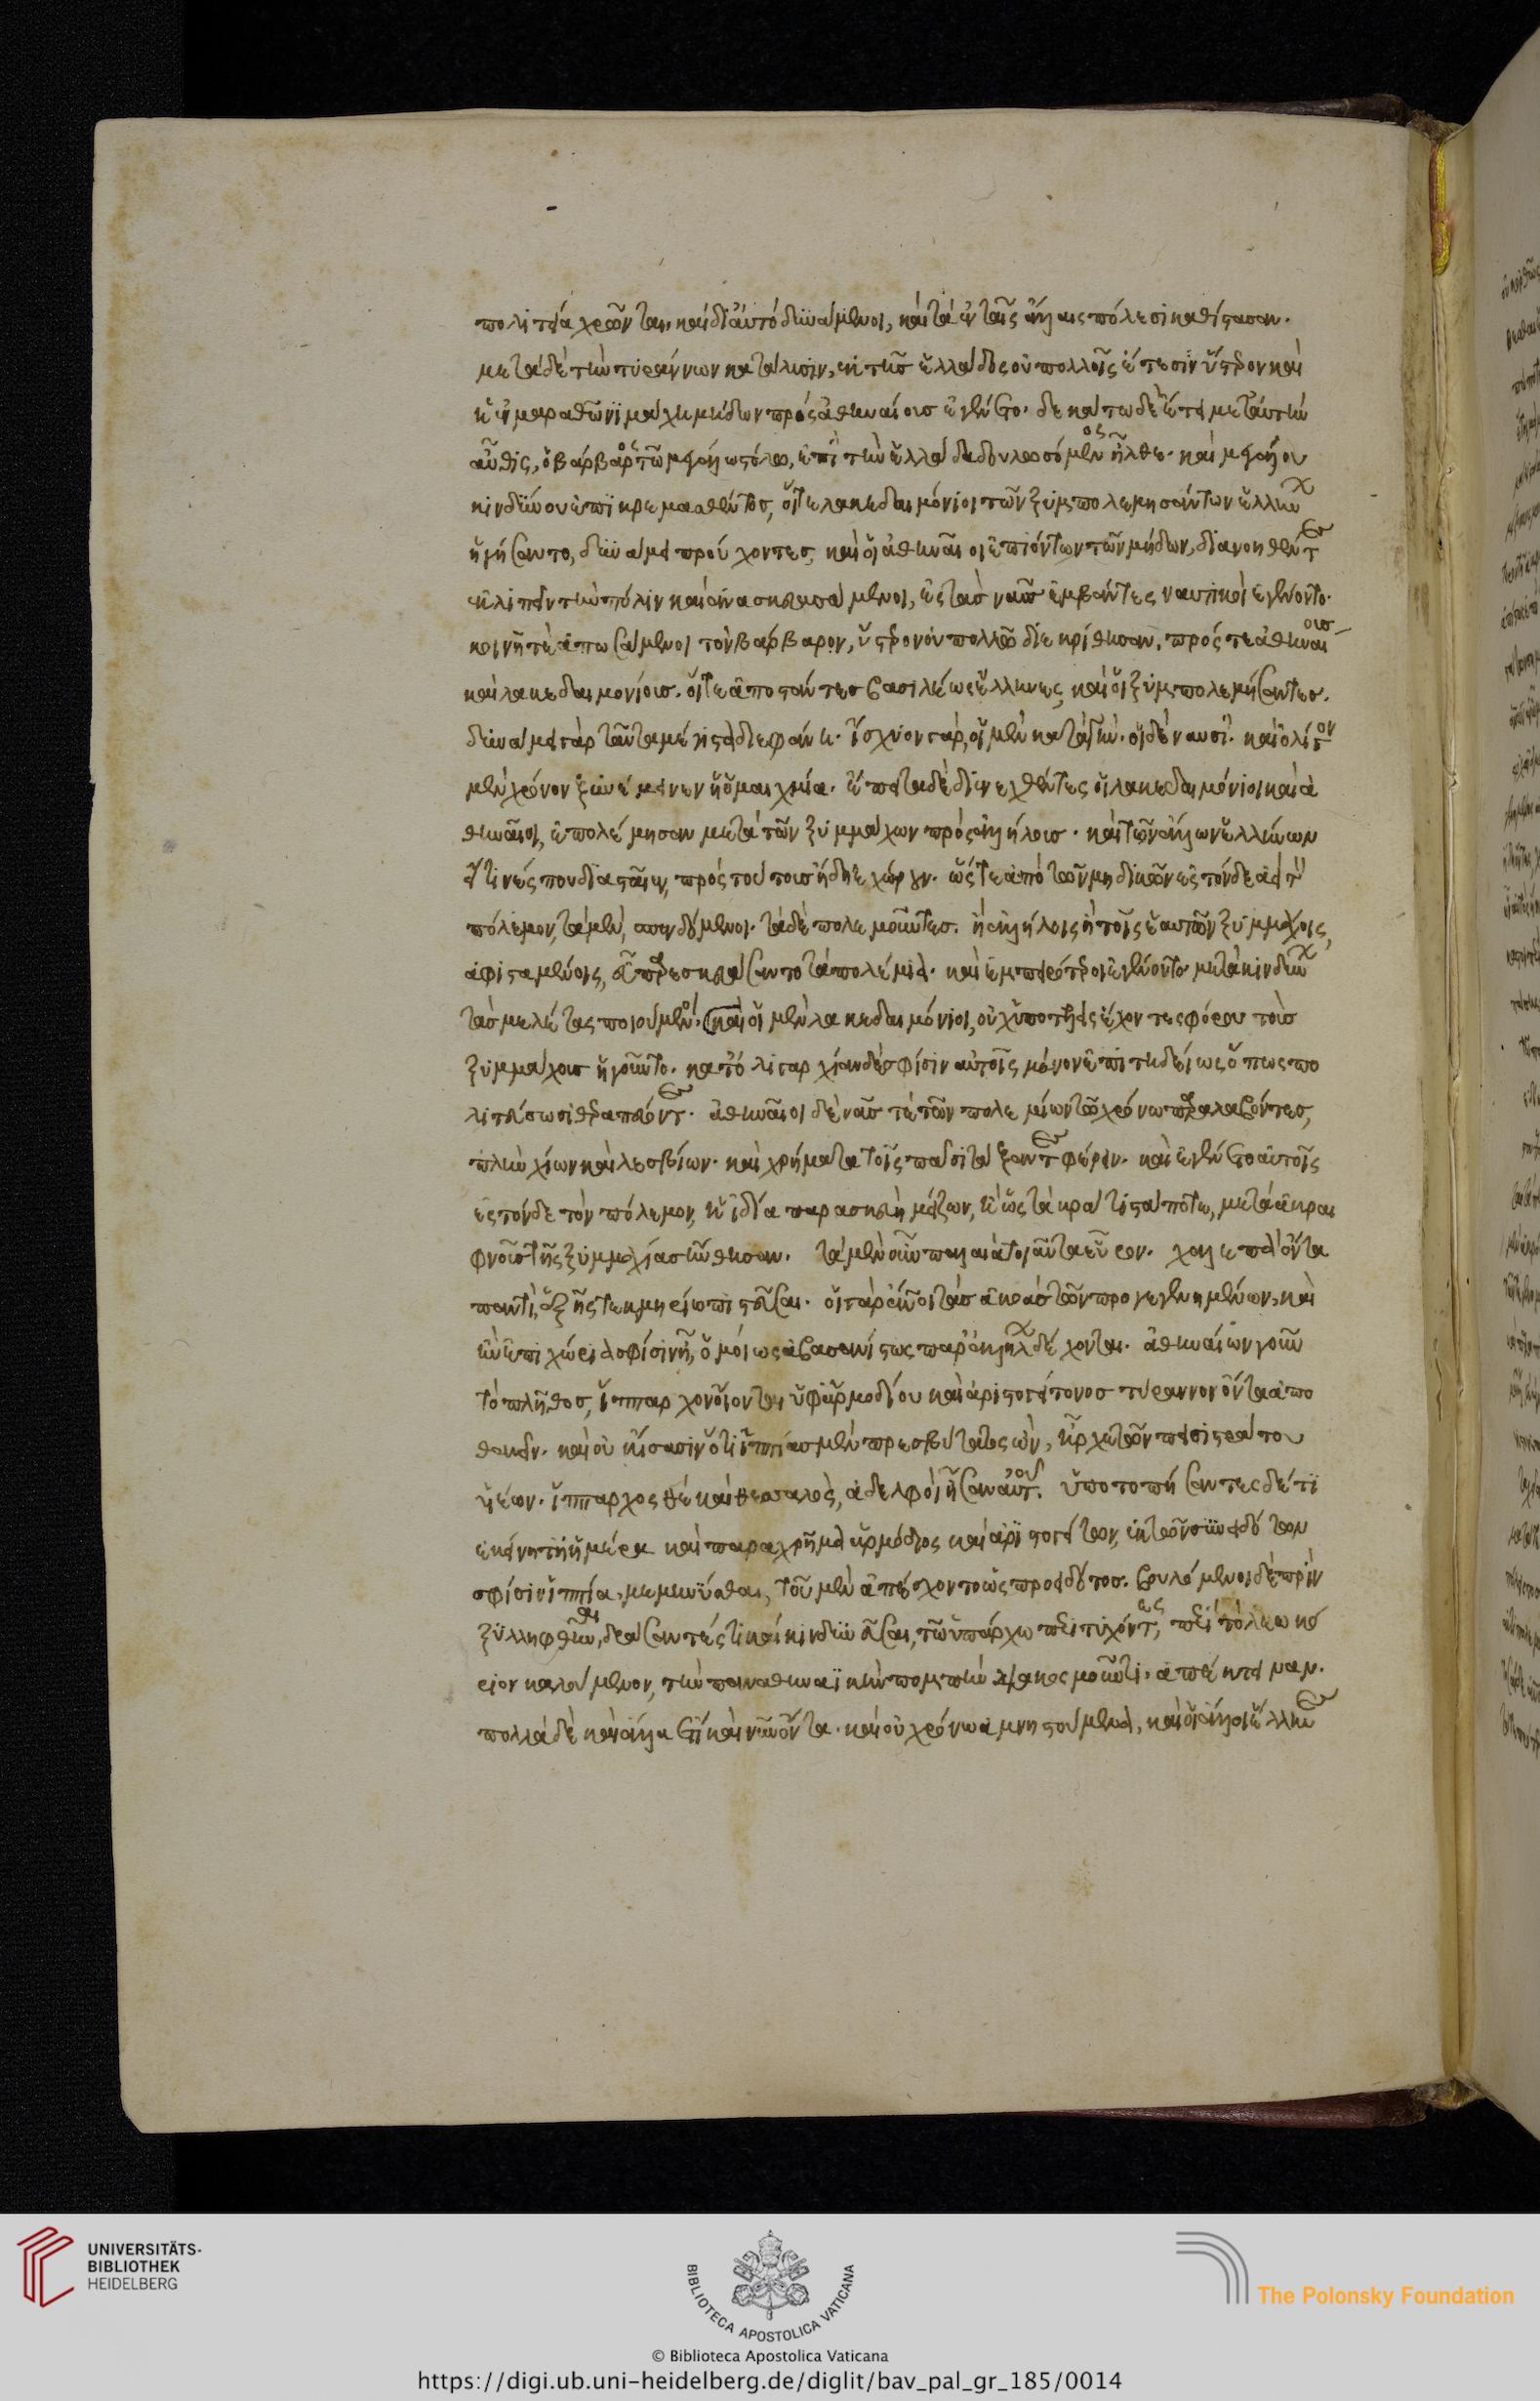 πολιτεία χρῶνται, καὶ δι' αὐτὸ δυνάμενοι, καὶ τὰ ἐν ταῖς ἄλλαις πόλεσι καθίστασαν.
μετὰ δὲ τὴν τυράννων κατάλυσιν, ἐκ τῆς ἑλλάδος οὐ πολλοῖς ἔτεσιν ὕστερον καὶ
ἡ ἐν μαραθῶνι μάχη μήδων πρὸς ἀθηναίους ἐγένετο. δεκάτω δὲ ἔτει μετ' αὐτὴν
αὖθις, ὁ βάρβαρος τῶ μεγάλω στόλω, ἐπὶ τὴν ἑλλάδα δουλωσόμενος ἦλθε. καὶ μεγάλου
κινδύνου ἐπικρεμασθέντος, οἵ τε λακεδαιμόνιοι τῶν ξυμπολεμησάντων ἑλλήνων
ἡγήσαντο, δυνάμει προύχοντες, καὶ οἱ ἀθηναῖοι ἐπιόντων τῶν μήδων, διανοηθέντες
ἐκλιπεῖν τὴν πόλιν καὶ ἀνασκευασάμενοι, ἐς τὰς ναῦς ἐμβάντες ναυτικοὶ ἐγένοντο.
κοινῆ τὲ ἀπωσάμενοι τὸν βάρβαρον, ὕστερον οὐ πολλῶ διεκρίθησαν, πρός τε ἀθηναίους
καὶ λακεδαιμονίους. οἵ τε ἀποστάντες βασιλέως ἕλληνες, καὶ οἱ ξυμπολεμήσαντες.
δυνάμει γὰρ ταῦτα μέγιστα διεφάνη. ἴσχυον γάρ, οἱ μὲν κατὰ γῆν. οἱ δὲ ναυσί. καὶ ὀλίγον
μὲν χρόνον ξυνέμεινεν ἡ ὁμαιχμία. ἔπειτα δὲ διενεχθέντες οἱ λακεδαιμόνιοι καὶ ἀ
θηναῖοι, ἐπολέμησαν μετὰ τῶν ξυμμάχων πρὸς ἀλλήλους. καὶ τῶν ἄλλων ἑλλήνων
εἴ τινές που διασταῖεν, πρὸς τούτους ἤδη ἐχώρουν. ὥστε ἀπὸ τῶν μηδικῶν ἐς τόνδε ἀεὶ τὸν
πόλεμον, τὰ μὲν, σπενδόμενοι. τὰ δὲ πολεμοῦντες. ἢ ἀλλήλοις ἢ τοῖς ἑαυτῶν ξυμμάχοις,
ἀφισταμένοις, εὖ παρεσκευάσαντο τὰ πολέμια. καὶ ἐμπειρότεροι ἐγένοντο μετὰ κινδύνων
τὰς μελέτας ποιούμενοι. καὶ οἱ μὲν λακεδαιμόνιοι, οὐχ ὑποτελεῖς ἔχοντες φόρου τοὺς
ξυμμάχους ἡγοῦντο. κατ' ὀλιγαρχίαν δὲ σφίσιν αὐτοῖς μόνον ἐπιτηδείως ὅπως πο
λιτεύσωσι θεραπεύοντες. ἀθηναῖοι δὲ ναῦς τὲ τῶν πολεμίων τῶ χρόνω παραλαβόντες,
πλὴν χίων καὶ λεσβίων. καὶ χρήματα τοῖς πᾶσι τάξαντες φέρειν. καὶ ἐγένετο αὐτοῖς
ἐς τόνδε τὸν πόλεμον, ἡ ἰδία παρασκευὴ μείζων, ἢ ὡς τὰ κράτιστά ποτε, μετὰ ἀκραι
φνοῦς τῆς ξυμμαχίας ἤνθησαν. τὰ μὲν οὖν παλαιὰ τοιαῦτα εὗρον. χαλεπὰ ὄντα
παντὶ, ἑξῆς τεκμηρίω πιστεῦσαι. οἱ γὰρ ἄνθρωποι τὰς ἀκοὰς τῶν προγεγενημένων, καὶ
ἢν ἐπιχώρια σφίσιν ἦ, ὁμοίως ἀβασανίστως παρ' ἀλλήλων δέχονται. ἀθηναίων γοῦν
τὸ πλῆθος, ἵππαρχον οἴονται ὑφ' ἁρμοδίου καὶ ἀριστογείτονος τύραννον ὄντα ἀπο
θανεῖν. καὶ οὐκ ἴσασιν ὅτι ἱππίας μὲν πρεσβύτατος ὢν, ἦρχε τῶν πεισιστράτου
υἱέων. ἵππαρχος δὲ καὶ θεσσαλὸς, ἀδελφοὶ ἦσαν αὐτοῦ. ὑποτοπήσαντες δέ τι
ἐκείνη τῆ ἡμέρα καὶ παραχρῆμα ἁρμόδιος καὶ ἀριστογείτων, ἐκ τῶν ξυνειδότων
σφίσιν ἱππία, μεμηνύσθαι, τοῦ μὲν ἀπέσχοντο ὡς προειδότος. βουλόμενοι δὲ πρὶν
ξυλληφθῆναι, δράσαντές τι καὶ κινδυνεῦσαι, τῶ ἱππάρχω περιτυχόντες, περὶ τὸ λεωκό
ριον καλούμενον, τὴν παναθηναϊκὴν πομπὴν διακοσμοῦντι, ἀπέκτειναν.
πολλὰ δὲ καὶ ἄλλα ἔτι καὶ νῦν ὄντα. καὶ οὐ χρόνω ἀμνηστούμενα, καὶ οἱ ἄλλοι ἕλληνες
UNIVERSITÄTS-
BIBLIOTHEK
HEIDELBERG
BIBLIOTECA APOSTOLICA VATICANA
The Polonsky Foundation
© Biblioteca Apostolica Vaticana
https://digi.ub.uni-heidelberg.de/diglit/bav_pal_gr_185/0014